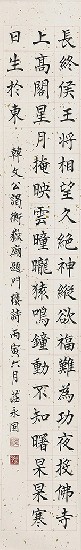 長終侯王將相望久絕神縱欲福難為功夜投佛寺
上高閣星月掩映雲曈曨猿鳴鐘動不知曙杲杲寒
日生於東 韓文公謁衡嶽廟題門樓詩丙寅六月 永固